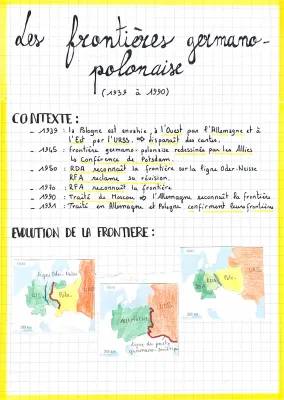 Les frontières germano-
polonaise
(1939 à 1990)
CONTEXTE :
– 1939 : la Pologne est envahie, à l'Ouest par l'Allemagne et à
l'Est par l'URSS. ⇒ disparaît des cartes.
– 1945 : frontière germano-polonaise redessinée par les Alliés
la Conférence de Potsdam.
– 1950 : RDA reconnaît la frontière sur la ligne Oder-Neisse
RFA réclame sa révision.
– 1970 : RFA reconnaît la frontière
– 1990 : Traité de Moscou ⇒ l'Allemagne reconnaît la frontière
– 1991 : Traité en Allemagne et Pologne confirment leurs frontières
EVOLUTION DE LA FRONTIERE :
ligne Oder-Neisse
Polo.
Polo.
ligne du pacte
germano-soviétique